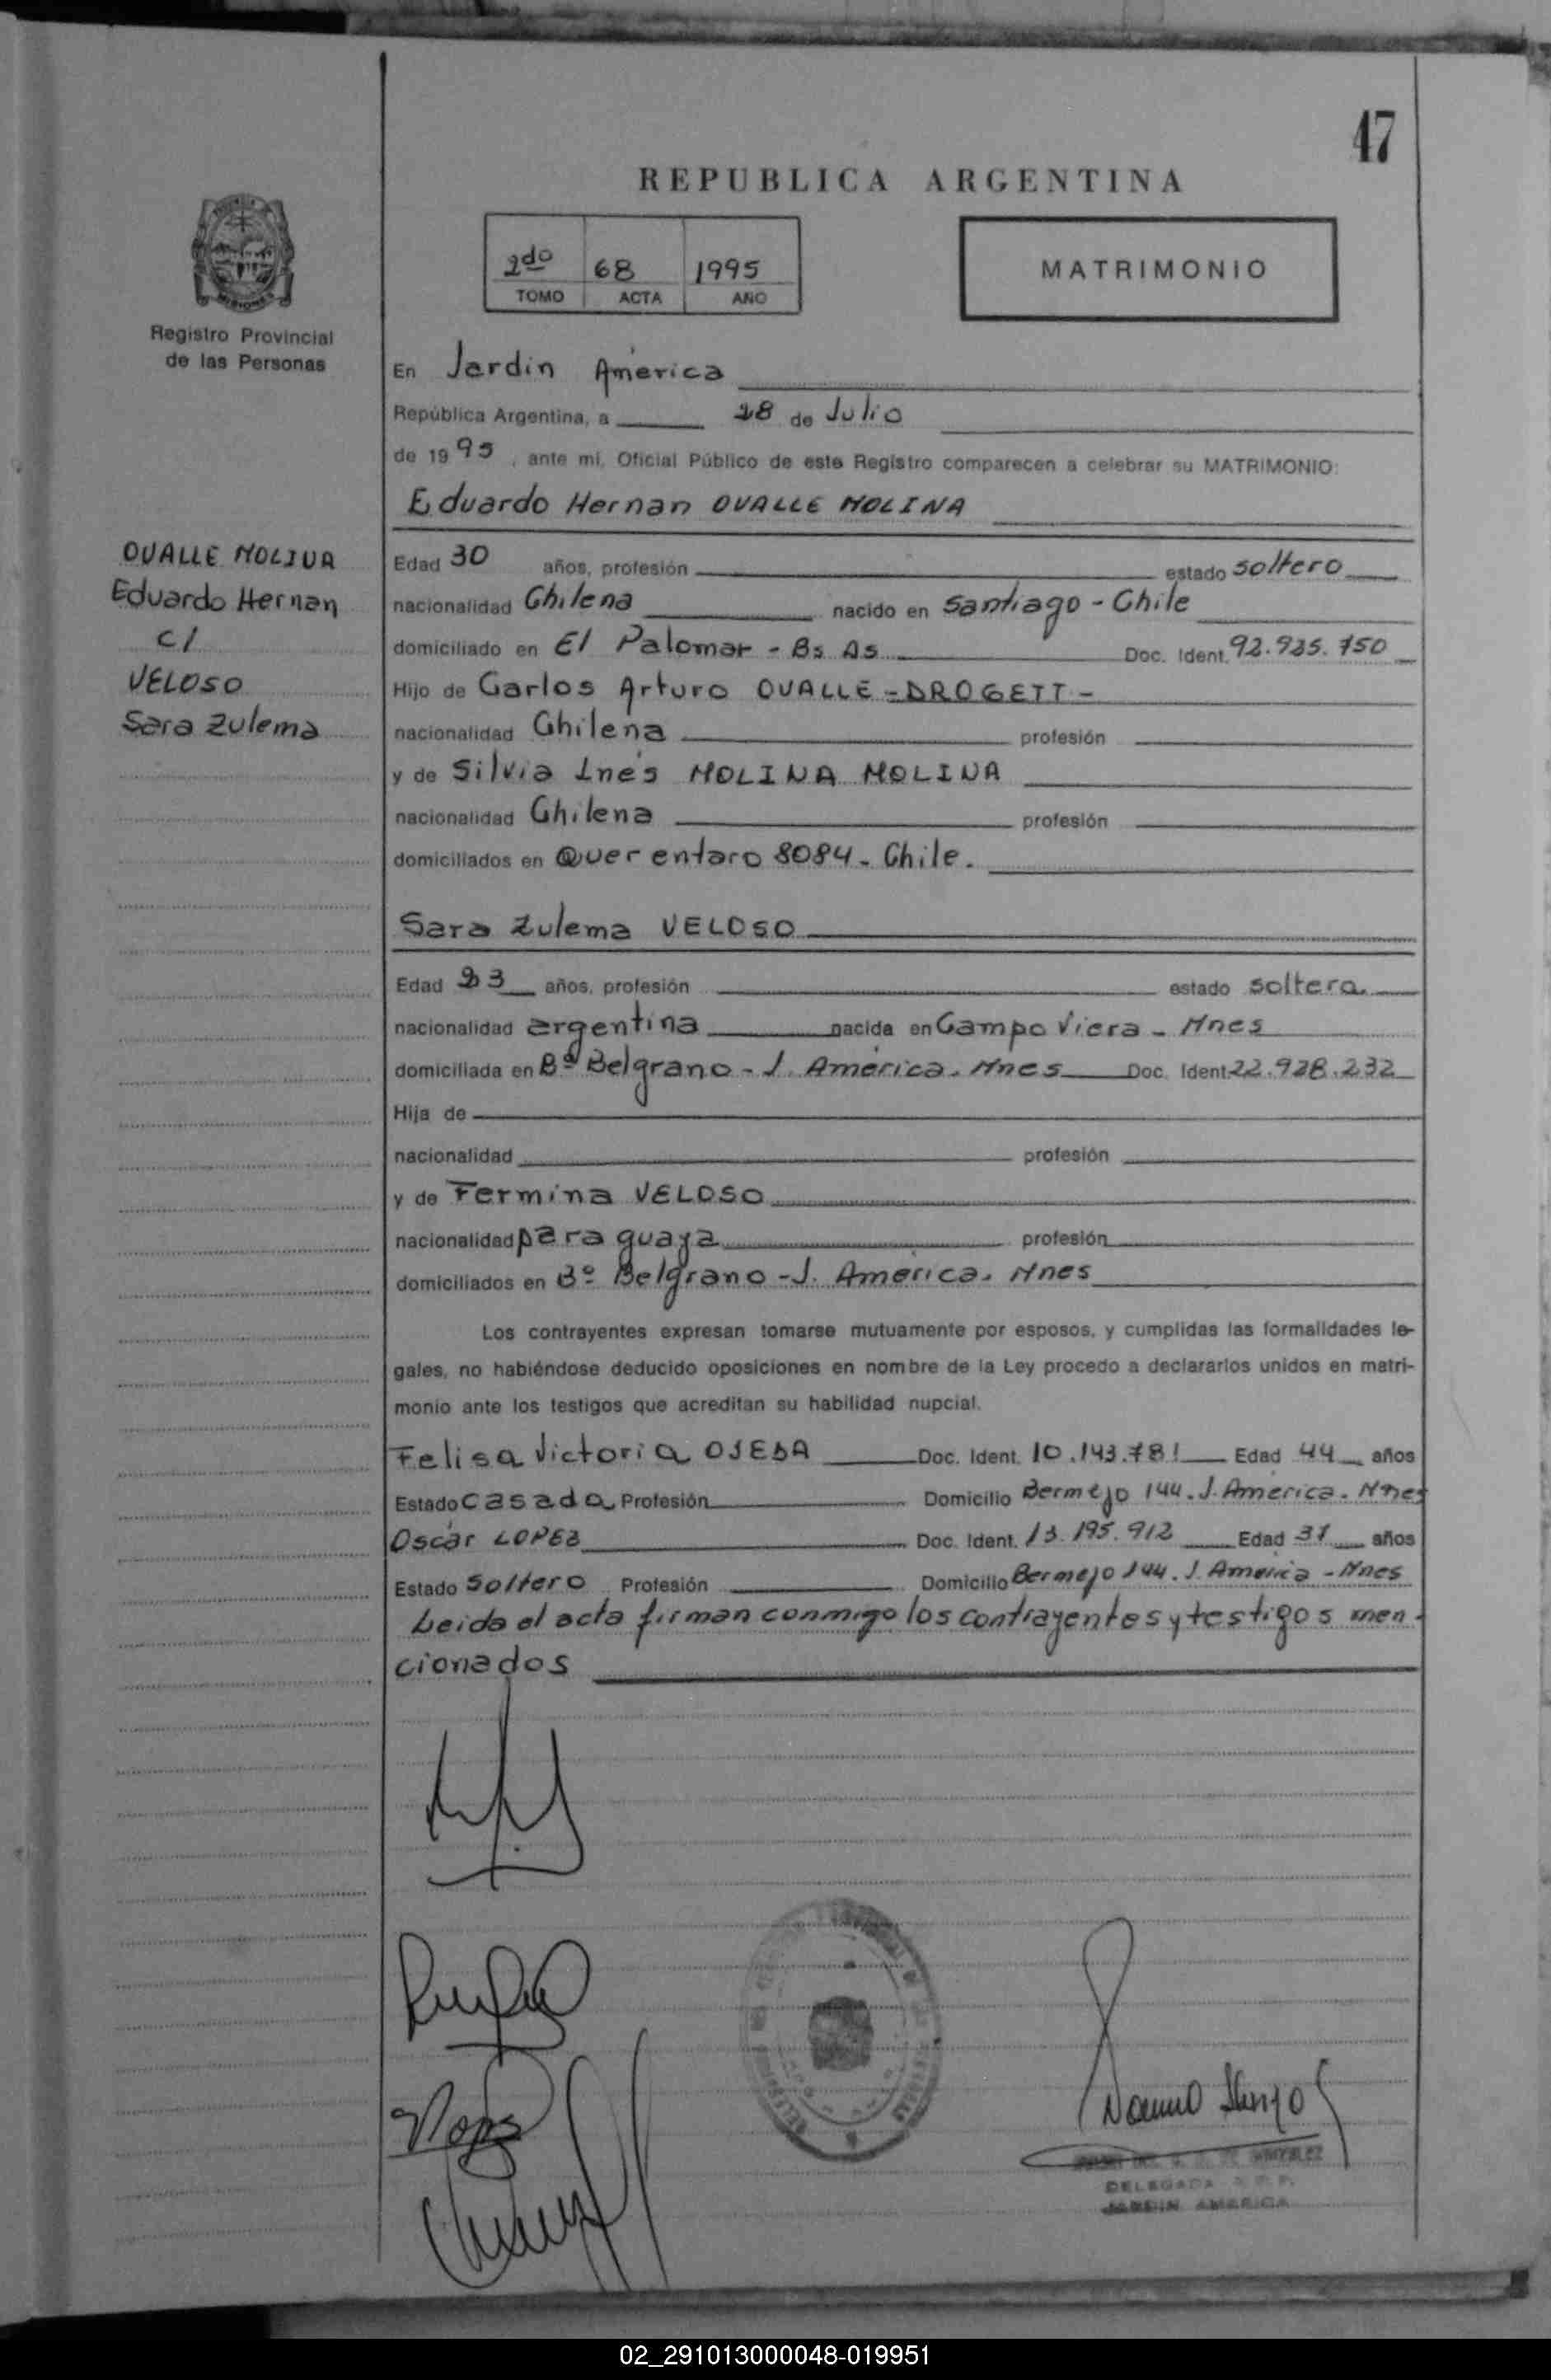 47
REPUBLICA ARGENTINA
2do 68 1995
TOMO ACTA AÑO
MATRIMONIO
Registro Provincial
de las Personas
En Jardin América
República Argentina, a 28 de Julio
de 1995, ante mi, Oficial Público de este Registro comparecen a celebrar su MATRIMONIO:
Eduardo Hernan OVALLE MOLINA
OVALLE MOLINA
Eduardo Hernan
c/
VELOSO
Sara Zulema
Edad 30 años, profesión estado soltero
nacionalidad Chilena nacido en Santiago - Chile
domiciliado en El Palomar - Bs As Doc. Ident. 92.925.750
Hijo de Carlos Arturo OVALLE - DROGETT -
nacionalidad Chilena profesión
y de Silvia Inés MOLINA MOLINA
nacionalidad Chilena profesión
domiciliados en Querentaro 8084 - Chile.
Sara Zulema VELOSO
Edad 23 años, profesión estado soltera
nacionalidad argentina nacida en Campo Viera - Mnes
domiciliada en Bº Belgrano - J. América. Mnes Doc. Ident. 22.928.232
Hija de
nacionalidad profesión
y de Fermina VELOSO
nacionalidad paraguaya profesión
domiciliados en Bº Belgrano - J. América. Mnes
Los contrayentes expresan tomarse mutuamente por esposos, y cumplidas las formalidades le-
gales, no habiéndose deducido oposiciones en nombre de la Ley procedo a declararlos unidos en matri-
monio ante los testigos que acreditan su habilidad nupcial.
Felisa Victoria OJEDA Doc. Ident. 10.143.781 Edad 44 años
Estado casada Profesión Domicilio Bermejo 144. J. América. Mnes
Oscar LOPEZ Doc. Ident. 13.195.912 Edad 37 años
Estado soltero Profesión Domicilio Bermejo 144. J. América - Mnes
Leida el acta firman conmigo los contrayentes y testigos men-
cionados
DELEGADA R. P. P.
JARDIN AMERICA
02_291013000048-019951